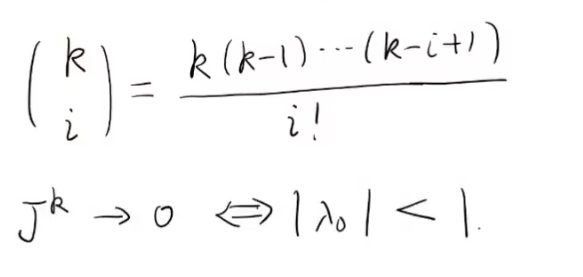 (k i) = k(k-1)···(k-i+1) / i!
J^k → 0 ⇔ |λ₀| < 1.